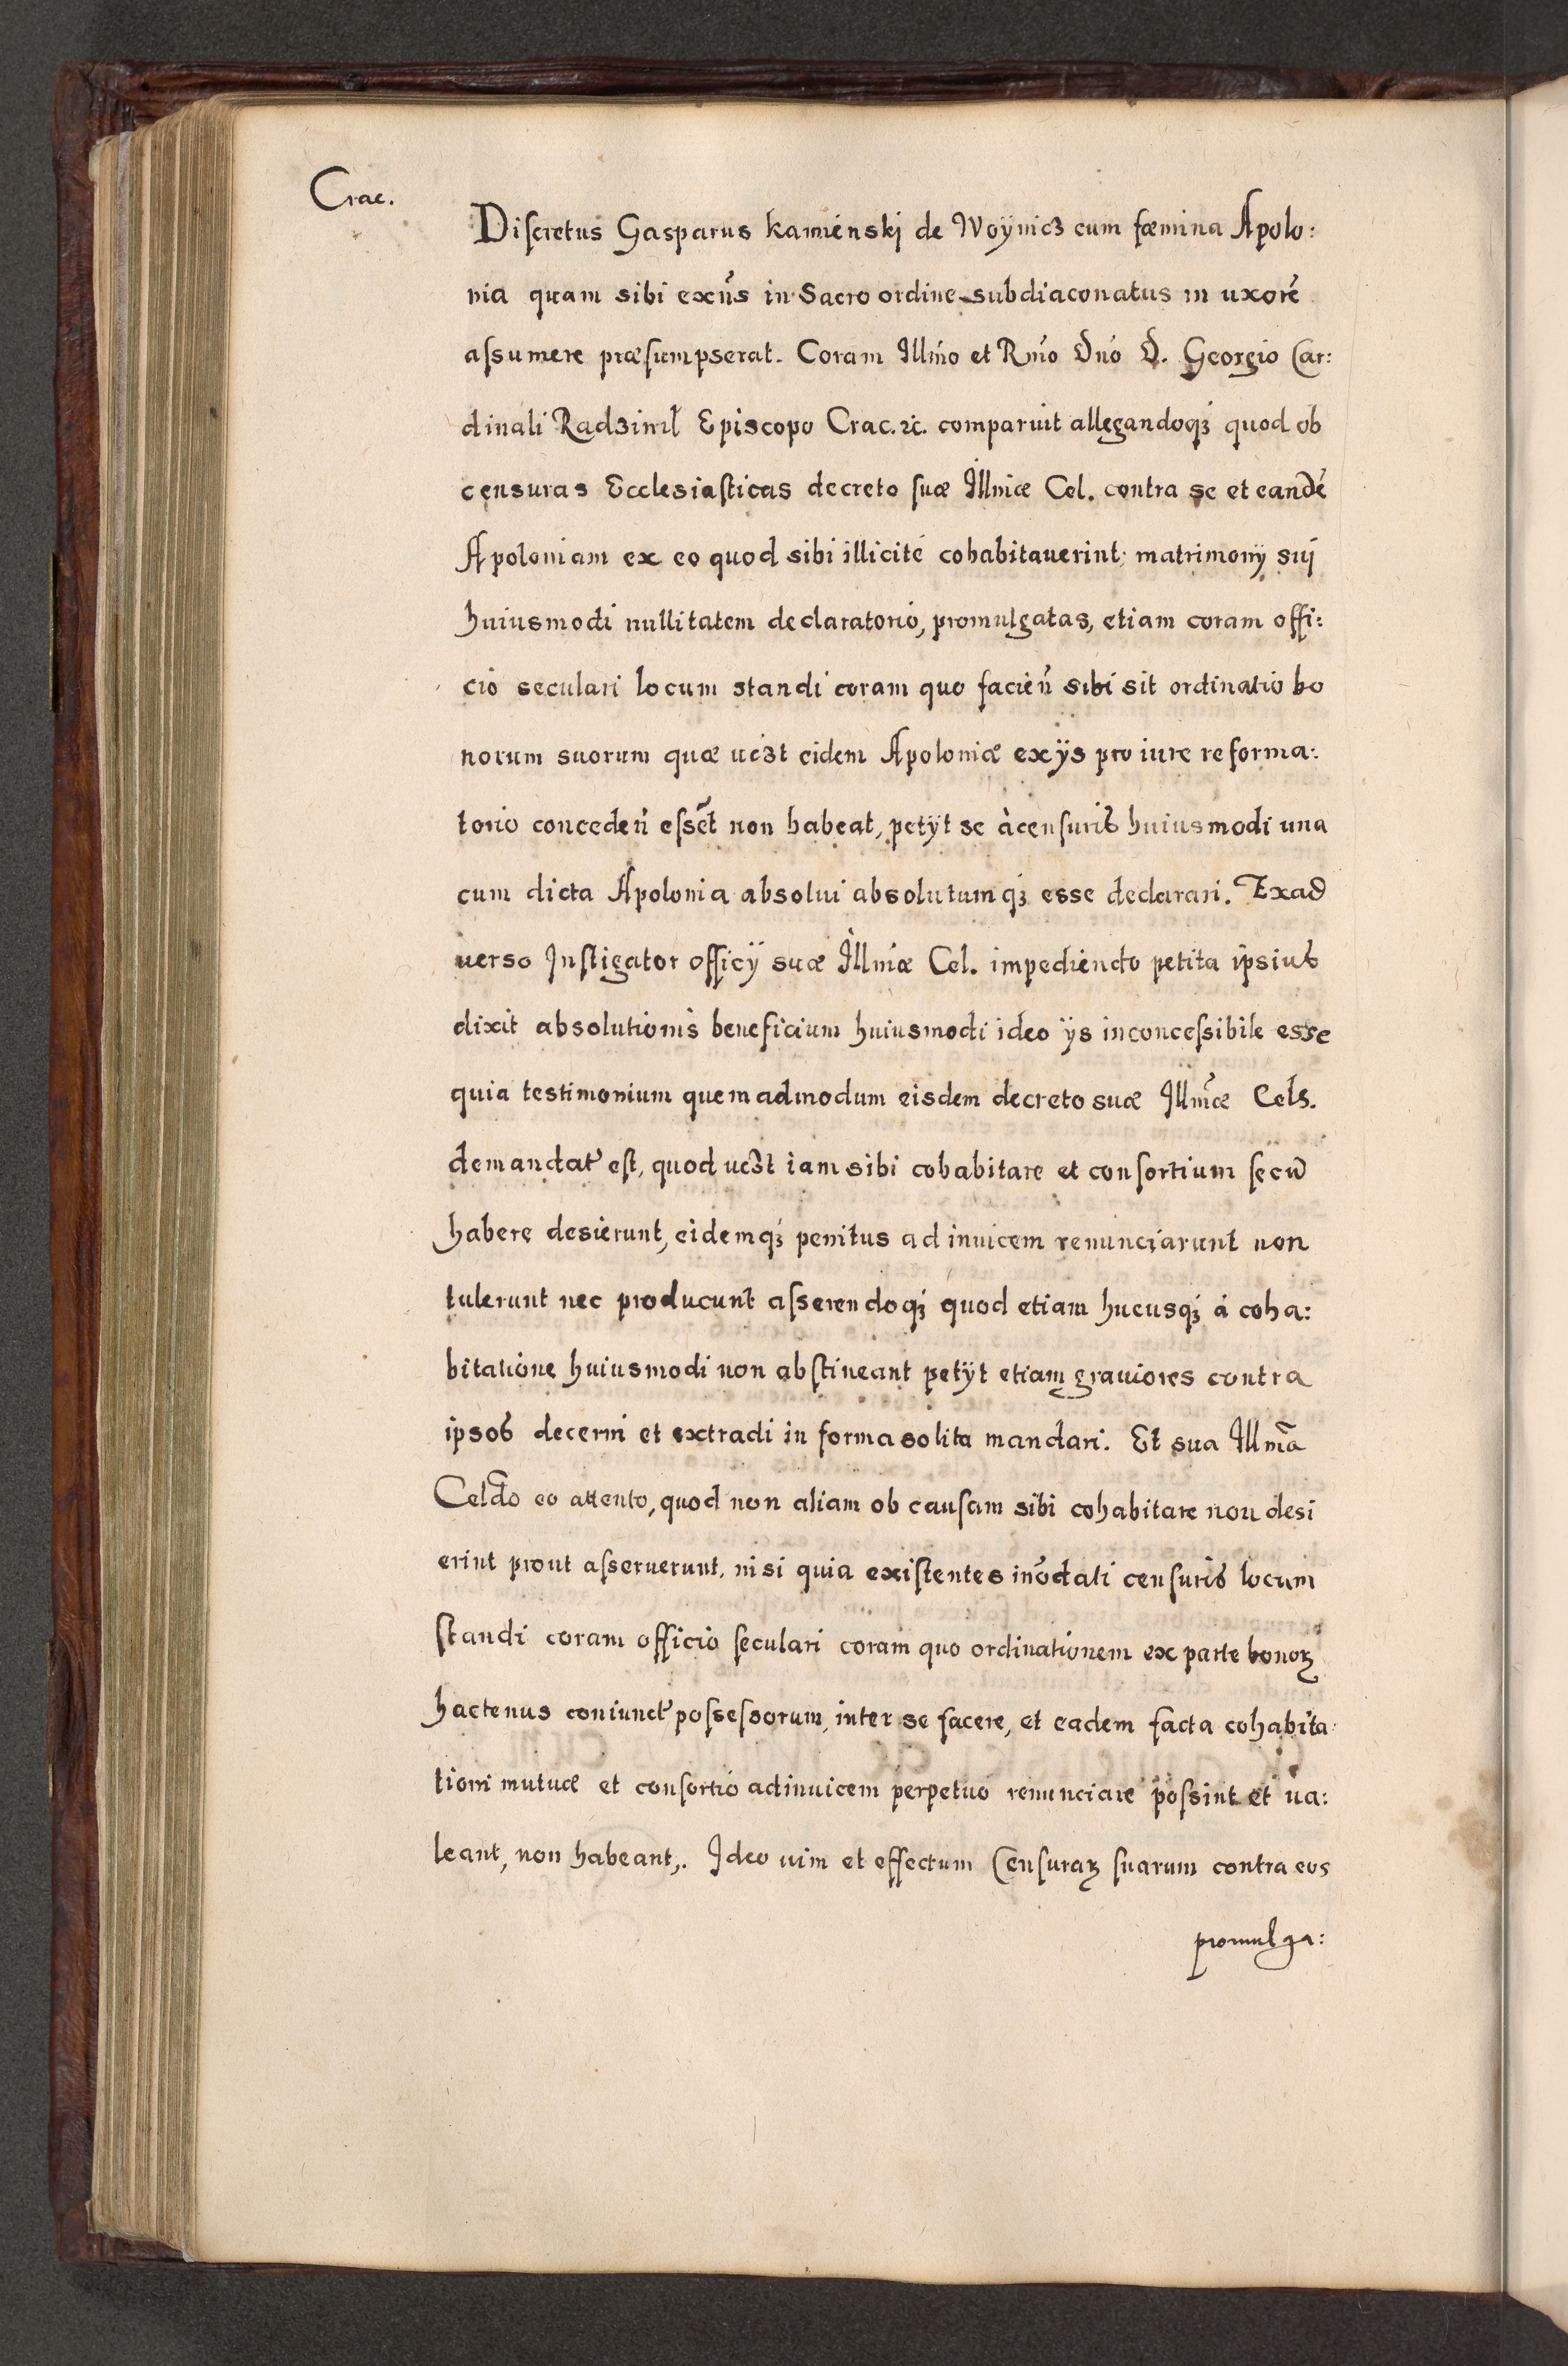 Crac.
Discretus Gasparus kamienskj de Woÿnicz cum fœmina Apolo:
nia quam sibi exñs in Sacro ordine subdiaconatus in uxorẽ
assumere præsumpserat. Coram Illm̃o et Rm̃o Dño D. Georgio Car:
dinali Radziwil Episcopo Crac. ꝛc. comparuit allegandoqȝ quod ob
censuras Ecclesiasticas decreto suæ Illm̃æ Cel. contra se et eandẽ
Apoloniam ex eo quod sibi illicitè cohabitauerint, matrimonÿ suj
huiusmodi nullitatem declaratorio, promulgatas, etiam coram offi:
cio seculari locum standi coram quo facien̄ sibi sit ordinatio bo
norum suorum quæ uczt eidem Apoloniæ ex ÿs pro iure reforma:
torio conceden̄ esset̃ non habeat, petÿt se à censuris huiusmodi una
cum dicta Apolonia absolui absolutumqȝ esse declarari. Ex ad
uerso Instigator officÿ suæ Illm̃æ Cel. impediendo petita ipsius
dixit absolutionis beneficium huiusmodi ideo ÿs inconcessibile esse
quia testimonium quemadmodum eisdem decreto suæ Illm̃æ Cels.
demandat̃ est, quod uczt iam sibi cohabitare et consortium secũ
habere desierunt, eidemqȝ penitus ad inuicem renunciarunt non
tulerunt nec producunt asserendoqȝ quod etiam hucusqȝ à coha:
bitatione huiusmodi non abstineant petÿt etiam grauiores contra
ipsos decerni et extradi in forma solita mandari. Et sua Illm̃a
Celdõ eo attento, quod non aliam ob causam sibi cohabitare non desi
erint prout asseruerunt, nisi quia existentes inõdati censuris locum
standi coram officio seculari coram quo ordinationem ex parte bonoꝝ
hactenus coniunct̃ possessorum, inter se facere, et eadem facta cohabita:
tioni mutuæ et consortio adinuicem perpetuo renunciare possint et ua:
leant, non habeant,. Ideo uim et effectum Censuraꝝ suarum contra eos
promulga: